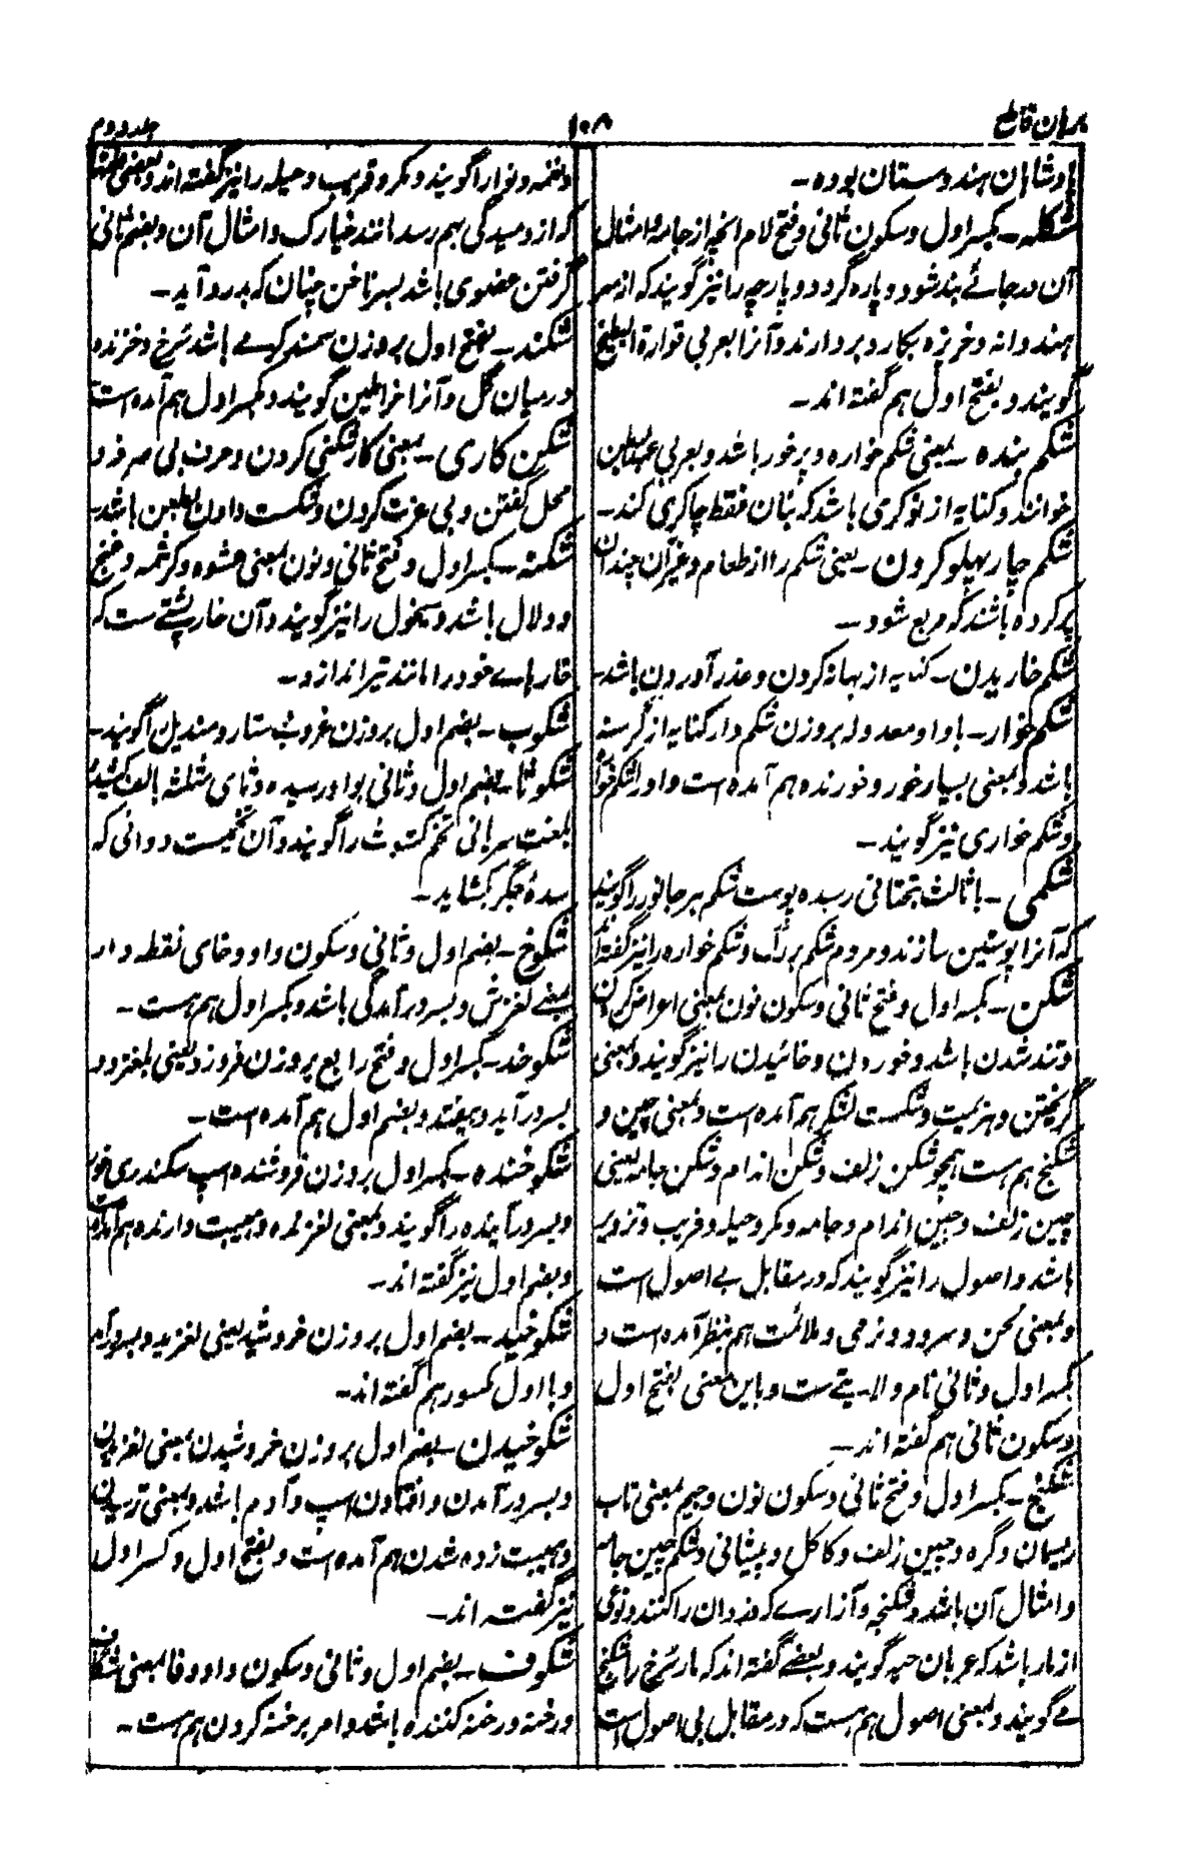 برهان قاطع
۱۰۸
جلد دوم
پادشاهان هندوستان بوده ـ
شکله ـ بکسر اول و سکون ثانی و فتح لام آنچه از جامه و امثال
آن در جائے بند شود و پاره گردد و پارچه را نیز گویند که از سر
هندوانه و خربزه بکارد بردارند و آنرا بعربی قوارة البطیخ
گویند و بفتح اول هم گفته اند ـ
شکم بنده ـ بمعنی شکم خواره و پرخور باشد و بعربی عبدالبطن
خوانند و کنایه از نوکری باشد که بنان فقط چاکری کند ـ
شکم چارپهلو کردن ـ یعنی شکم را از طعام و غیر آن چندان
پر کرده باشند که مربع شود ـ
شکم خاریدن ـ کنایه از بهانه کردن و عذر آوردن باشد ـ
شکم خوار ـ با واو معدوله بروزن شکم دار کنایه از گرسنه
باشد و بمعنی بسیار خور و خورنده هم آمده است و او را شکم خواره
و شکم خواری نیز گویند ـ
شکمی ـ با ثالث بتحتانی رسیده پوست شکم هر جانور را گویند
که آنرا پوستین سازند و مردم شکم بزرگ و شکم خواره را نیز گفته اند
شکن ـ بکسر اول و فتح ثانی و سکون نون بمعنی اعراض کردن
و تند شدن باشد و خوردن و خائیدن را نیز گویند و بمعنی
گریختن و هزیمت و شکست لشکر هم آمده است و بمعنی چین و
شکنج هم هست همچو شکن زلف و شکن اندام و شکن جامه یعنی
چین زلف و چین اندام و جامه و مکر و حیله و فریب و تزویر
باشد و اصول را نیز گویند که در مقابل بے اصول است
و بمعنی لحن و سرود و نرمی و ملائمت هم بنظر آمده است و
بکسر اول و ثانی نام ولایتے ست و باین معنی بفتح اول
و سکون ثانی هم گفته اند ـ
شکنج ـ بکسر اول و فتح ثانی و سکون نون و جیم بمعنی تاب
ریسمان و گره و چین زلف و کاکل و پیشانی و شکم چین جامه
و امثال آن باشد و شکنجه و آزارے که دزدان را کنند و نوعی
از مار باشد که عربان حیه گویند و بعضے گفته اند که مار سرخ را شکنج
مے گویند و بمعنی اصول هم هست که در مقابل بی اصول است
و نغمه و نوا را گویند و مکر و فریب و حیله را نیز گفته اند و بمعنی
که از دمیدگی بهم رسد مانند خیارک و امثال آن و بضم ثانی
گرفتن عضوی باشد بسر ناخن چنان که بدرد آید ـ
شکند ـ بفتح اول بروزن سمند کرمے باشد سرخ و خزنده
در میان گل و آنرا خراطین گویند و بکسر اول هم آمده است
شکن کاری ـ بمعنی کارشکنی کردن و حرف بی صرفه و
محل گفتن و بی عزت کردن و شکست دادن باشد ـ
شکنه ـ بکسر اول و فتح ثانی و نون بمعنی عشوه و کرشمه و غنج
و دلال باشد و سیخول را نیز گویند و آن خارپشتے ست که
خارهاے خود را مانند تیر اندازد ـ
شکوب ـ بضم اول بروزن غروب دستار و مندیل را گویند ـ
شکوثا ـ بضم اول و ثانی بواو رسیده و ثای مثلثه بالف کشیده
بلغت سریانی تخم کشوث را گویند و آن تخمیست دوائی که
سدهٔ جگر بکشاید ـ
شکوخ ـ بضم اول و ثانی و سکون واو و خای نقطه دار
بمعنے لغزش و بسر درآمدگی باشد و بکسر اول هم هست ـ
شکوخد ـ بکسر اول و فتح رابع بروزن فروزد یعنی بلغزد و
بسر درآید و بیفتد و بضم اول هم آمده است ـ
شکوخنده ـ بکسر اول بروزن فروشنده اسپ سکندری خور
و بسر درآینده را گویند و بمعنی لغزنده و هیبت دارنده هم آمده است
و بضم اول نیز گفته اند ـ
شکوخید ـ بضم اول بروزن خروشید یعنی لغزید و بسر درآمد
و با اول مکسور هم گفته اند ـ
شکوخیدن ـ بضم اول بروزن خروشیدن بمعنی لغزیدن
و بسر درآمدن و افتادن اسپ و آدم باشد و بمعنی ترسیدن
و هیبت زده شدن هم آمده است و بفتح اول و کسر اول
نیز گفته اند ـ
شکوف ـ بضم اول و ثانی و سکون واو و فا بمعنی شکاف
و رخنه و رخنه کننده باشد و امر بر رخنه کردن هم هست ـ